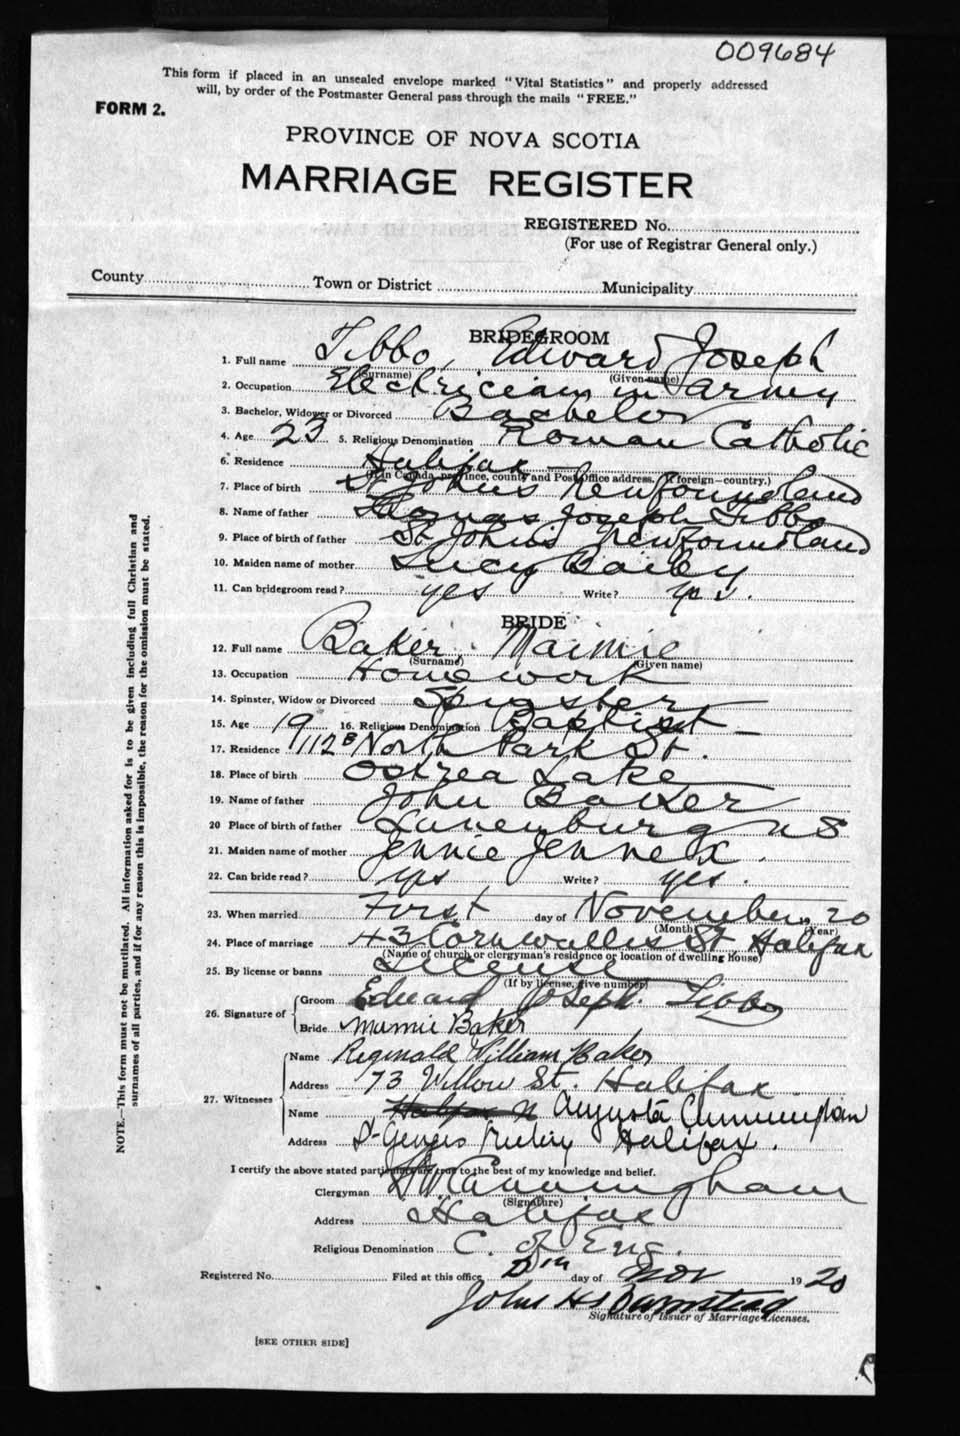 009684
This form if placed in an unsealed envelope marked "Vital Statistics" and properly addressed
will, by order of the Postmaster General pass through the mails "FREE."
FORM 2.
PROVINCE OF NOVA SCOTIA
MARRIAGE REGISTER
REGISTERED No.
(For use of Registrar General only.)
County Town or District Municipality
BRIDEGROOM
1. Full name Tibbo, Edward Joseph
(Surname) (Given name)
2. Occupation Electriceian in army
3. Bachelor, Widower or Divorced Bachelor
4. Age 23 5. Religious Denomination Roman Catholic
6. Residence Halifax
(If in Canada, province, county and Post Office address. If foreign—country.)
7. Place of birth St Johns Newfoundland
8. Name of father Thomas Joseph Tibbo
9. Place of birth of father St Johns Newfoundland
10. Maiden name of mother Lucy Bailey
11. Can bridegroom read? yes Write? yes.
BRIDE
12. Full name Baker, Maimie
(Surname) (Given name)
13. Occupation Homework
14. Spinster, Widow or Divorced Spinster
15. Age 19 16. Religious Denomination Baptist
17. Residence 112 B North Park St.
18. Place of birth Ostrea Lake
19. Name of father John Baker
20 Place of birth of father Lunenburg NS
21. Maiden name of mother Jennie Jennex.
22. Can bride read? yes Write? yes.
23. When married First day of November 1920
(Month) (Year)
24. Place of marriage 43 Cornwallis St, Halifax
(Name of church or clergyman's residence or location of dwelling house)
25. By license or banns License
(If by license, give number)
26. Signature of Groom Edward Joseph. Tibbo
Bride Mamie Baker
27. Witnesses Name Reginald William Baker
Address 73 Willow St. Halifax
Name Augusta Cunningham
Address St Georges Halifax.
I certify the above stated particulars are true to the best of my knowledge and belief.
Clergyman Cunningham
(Signature)
Address Halifax
Religious Denomination C. of Eng.
Registered No. Filed at this office day of Nov 1920
John H
Signature of Issuer of Marriage Licenses.
[SEE OTHER SIDE]
NOTE.—This form must not be mutilated. All information asked for is to be given including full Christian and
surnames of all parties, and if for any reason this is impossible, the reason for the omission must be stated.